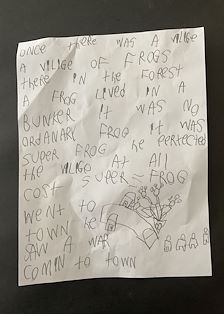 ONCE THERE WAS A VILIGE
A VILIGE OF FROGS
THERE IN THE FOREST
A FROG LIVED IN A
BUNKER IT WAS NO
ORDANARY FROG IT WAS
SUPER FROG HE PERFECTED
THE VILIGE AT All
COST SUPER-FROG
WENT TO THE
TOWN HE
SAW A WAR
COMIN TO TOWN